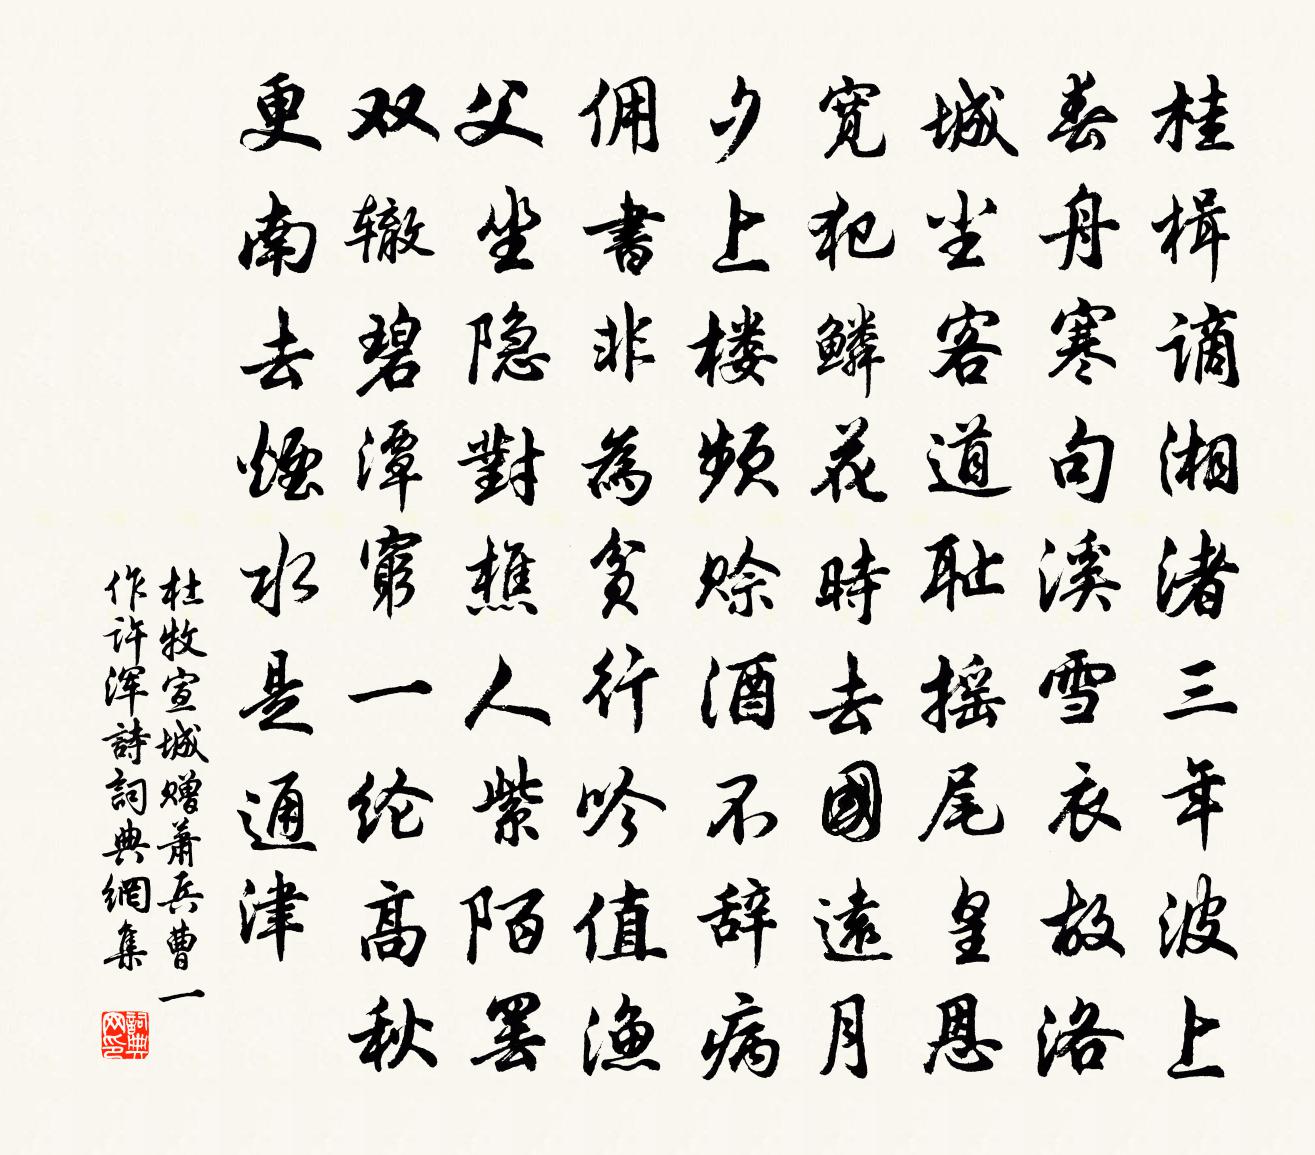 桂楫谪湘渚三年波上
春舟寒句溪雪衣故洛
城尘客道耻摇尾皇恩
宽犯鳞花時去國遠月
夕上楼频赊酒不辞病
佣書非為贫行吟值渔
父坐隐對樵人紫陌罢
双辙碧潭窮一纶高秋
更南去煙水是通津
杜牧宣城赠萧兵曹一
作许浑詩詞典網集
詞典网印